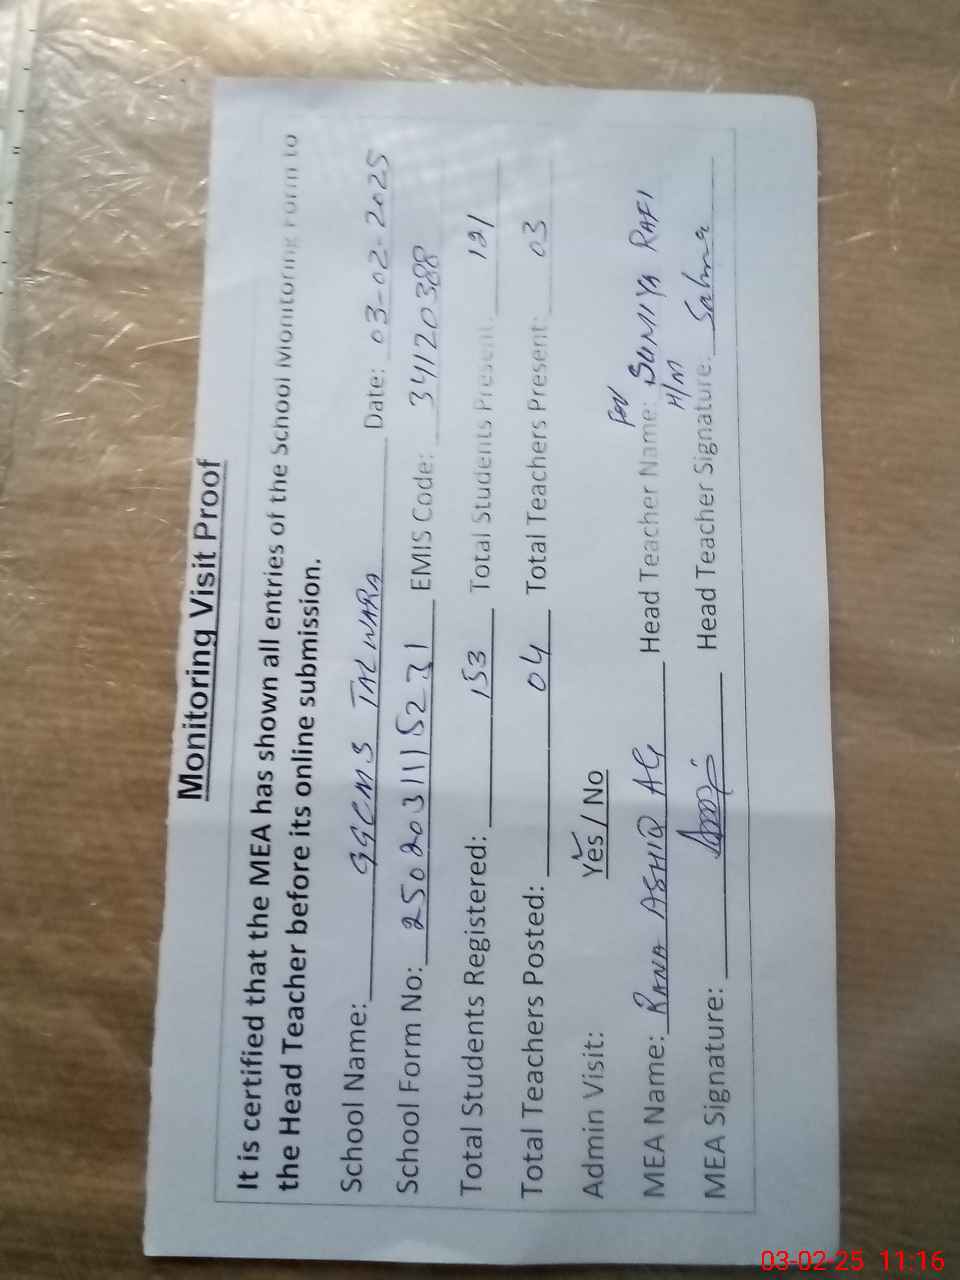 Monitoring Visit Proof
It is certified that the MEA has shown all entries of the School Monitoring Form to
the Head Teacher before its online submission.
School Name: GGCMS TALWARA Date: 03-02-2025
School Form No: 2502031115271 EMIS Code: 34120388
Total Students Registered: 153 Total Students Present: 121
Total Teachers Posted: 04 Total Teachers Present: 03
Admin Visit: Yes / No
For
MEA Name: RANA ASHIQ ALI Head Teacher Name: SUMIYA RAFI
H/M
MEA Signature: Head Teacher Signature: Salma
03-02-25 11:16